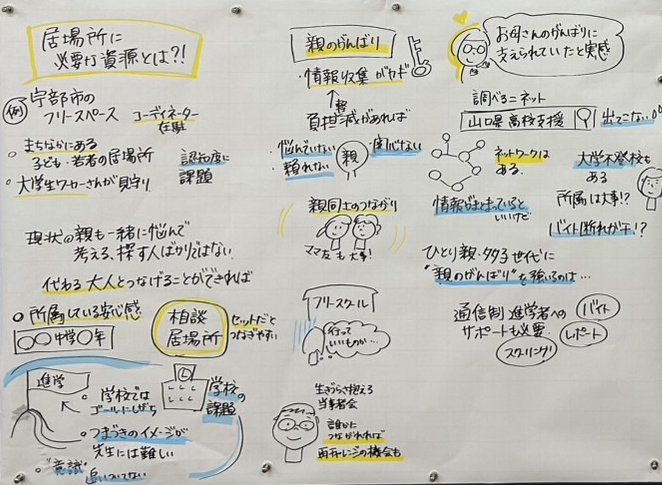 居場所に
必要な資源とは?!
例
宇部市の
フリースペース
コーディネーター
在駐
・まちなかにある
子ども・若者の居場所
・大学生ワーカーさんが見守り
認知度に
課題
現状の親も一緒に悩んで
考える、探す人ばかりではない
代わる大人とつなげることができれば
・所属している安心感
〇〇中学〇年
相談
居場所
セットだと
つなぎやすい
進学
・学校では
ゴールにしがち
・つまづきのイメージが
先生には難しい
・"意識"
追いついてない
学校の
課題
親のがんばり
・情報収集がカギ
負担減があれば
悩んでいない
頼れない
親
親同士のつながり
ママ友も大事!
フリースクール
行って
いいものか…
生きづらさ抱える
当事者会
誰かに
つながれれば
再チャレンジの機会も
お母さんのがんばりに
支えられていたと実感
調べるニネット
山口県高校支援
出てこない
ネットワークは
ある
情報がまとまっていると
いいけど
大学不登校も
ある
所属は大事!?
バイト断れが千!?
ひとり親・多子世代に
"親のがんばり"を強いるのは…
通信制進学者への
サポートも必要
バイト
レポート
スクーリング